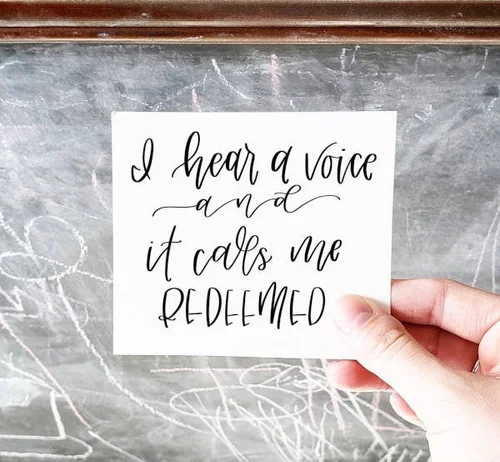 I hear a voice
and
it calls me
REDEEMED